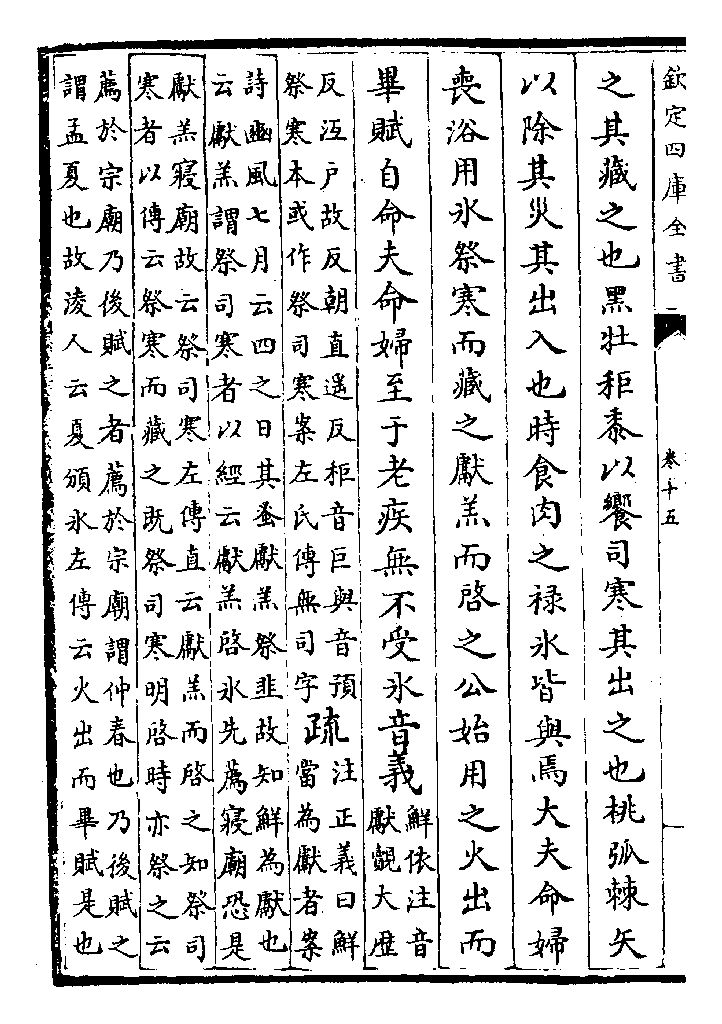 欽定四庫全書
卷十五
之其藏之也黑牡秬黍以饗司寒其出之也桃弧棘矢
以除其災其出入也時食肉之禄氷皆與焉大夫命婦
喪浴用氷祭寒而藏之獻羔而啓之公始用之火出而
畢賦自命夫命婦至于老疾無不受氷音義
鮮依注音
獻覿大歴
反沍户故反朝直遥反秬音巨與音預
祭寒本或作祭司寒案左氏傳無司字
疏
注正義曰鮮
當為獻者案
詩豳風七月云四之日其蚤獻羔祭韭故知鮮為獻也
云獻羔謂祭司寒者以經云獻羔啓氷先薦寢廟恐是
獻羔寢廟故云祭司寒左傳直云獻羔而啓之知祭司
寒者以傳云祭寒而藏之既祭司寒明啓時亦祭之云
薦於宗廟乃後賦之者薦於宗廟謂仲春也乃後賦之
謂孟夏也故淩人云夏頒氷左傳云火出而畢賦是也